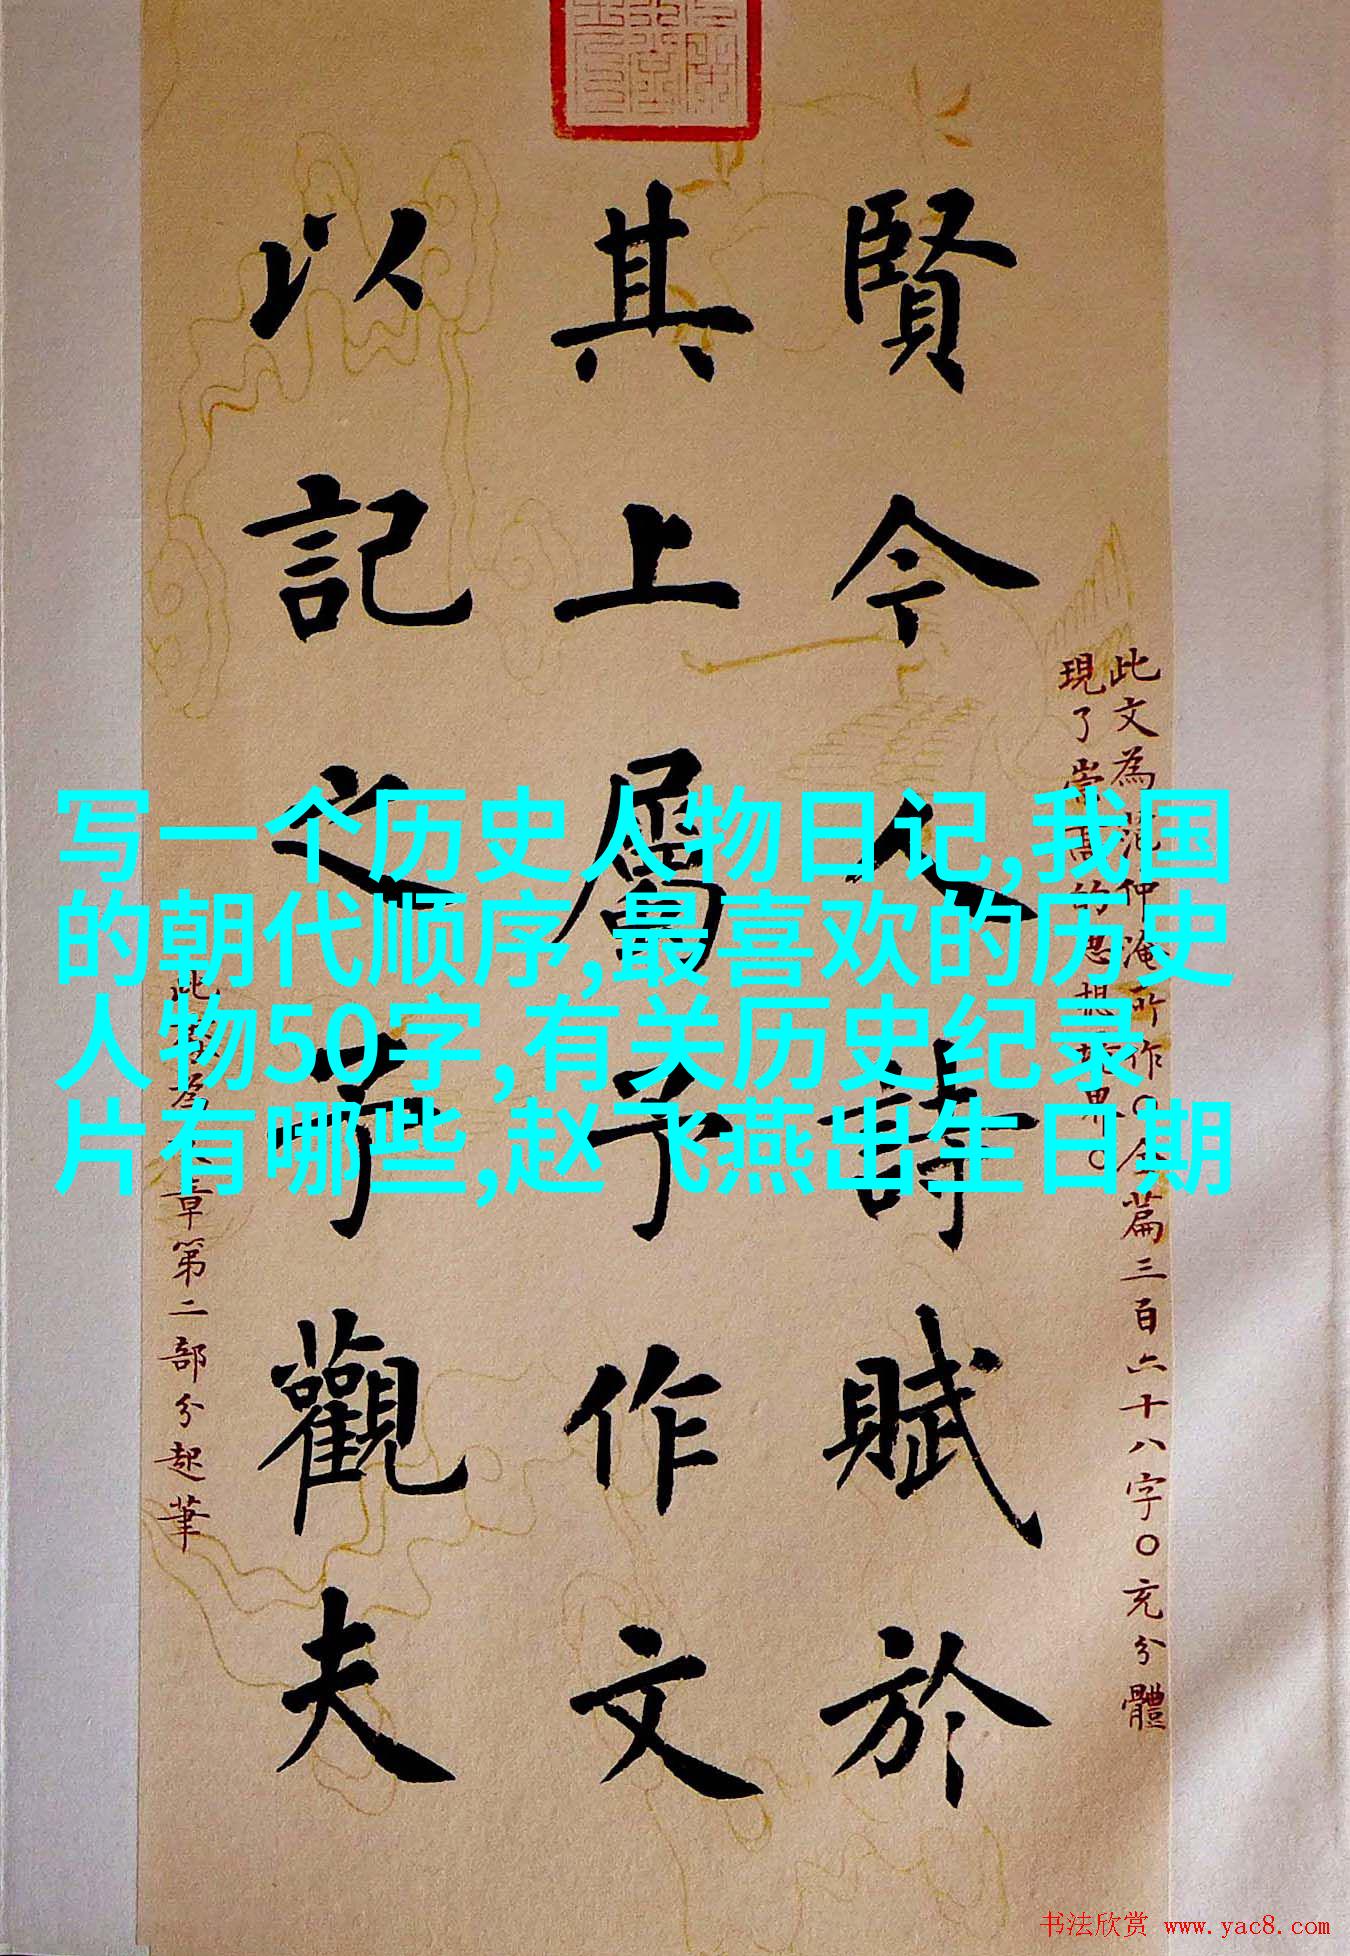 賢今人詩賦於
其上屬予作文
以記之予觀夫
此文為范仲淹所作〇全篇三百六十八字〇充分體
現了崇高的思想境界〇
章第二部分起筆
写一个历史人物日记,我国
的朝代顺序,最喜欢的历史
人物50字,有关历史纪录
片有哪些,赵飞燕出生日期
书法欣赏 www.yac8.com